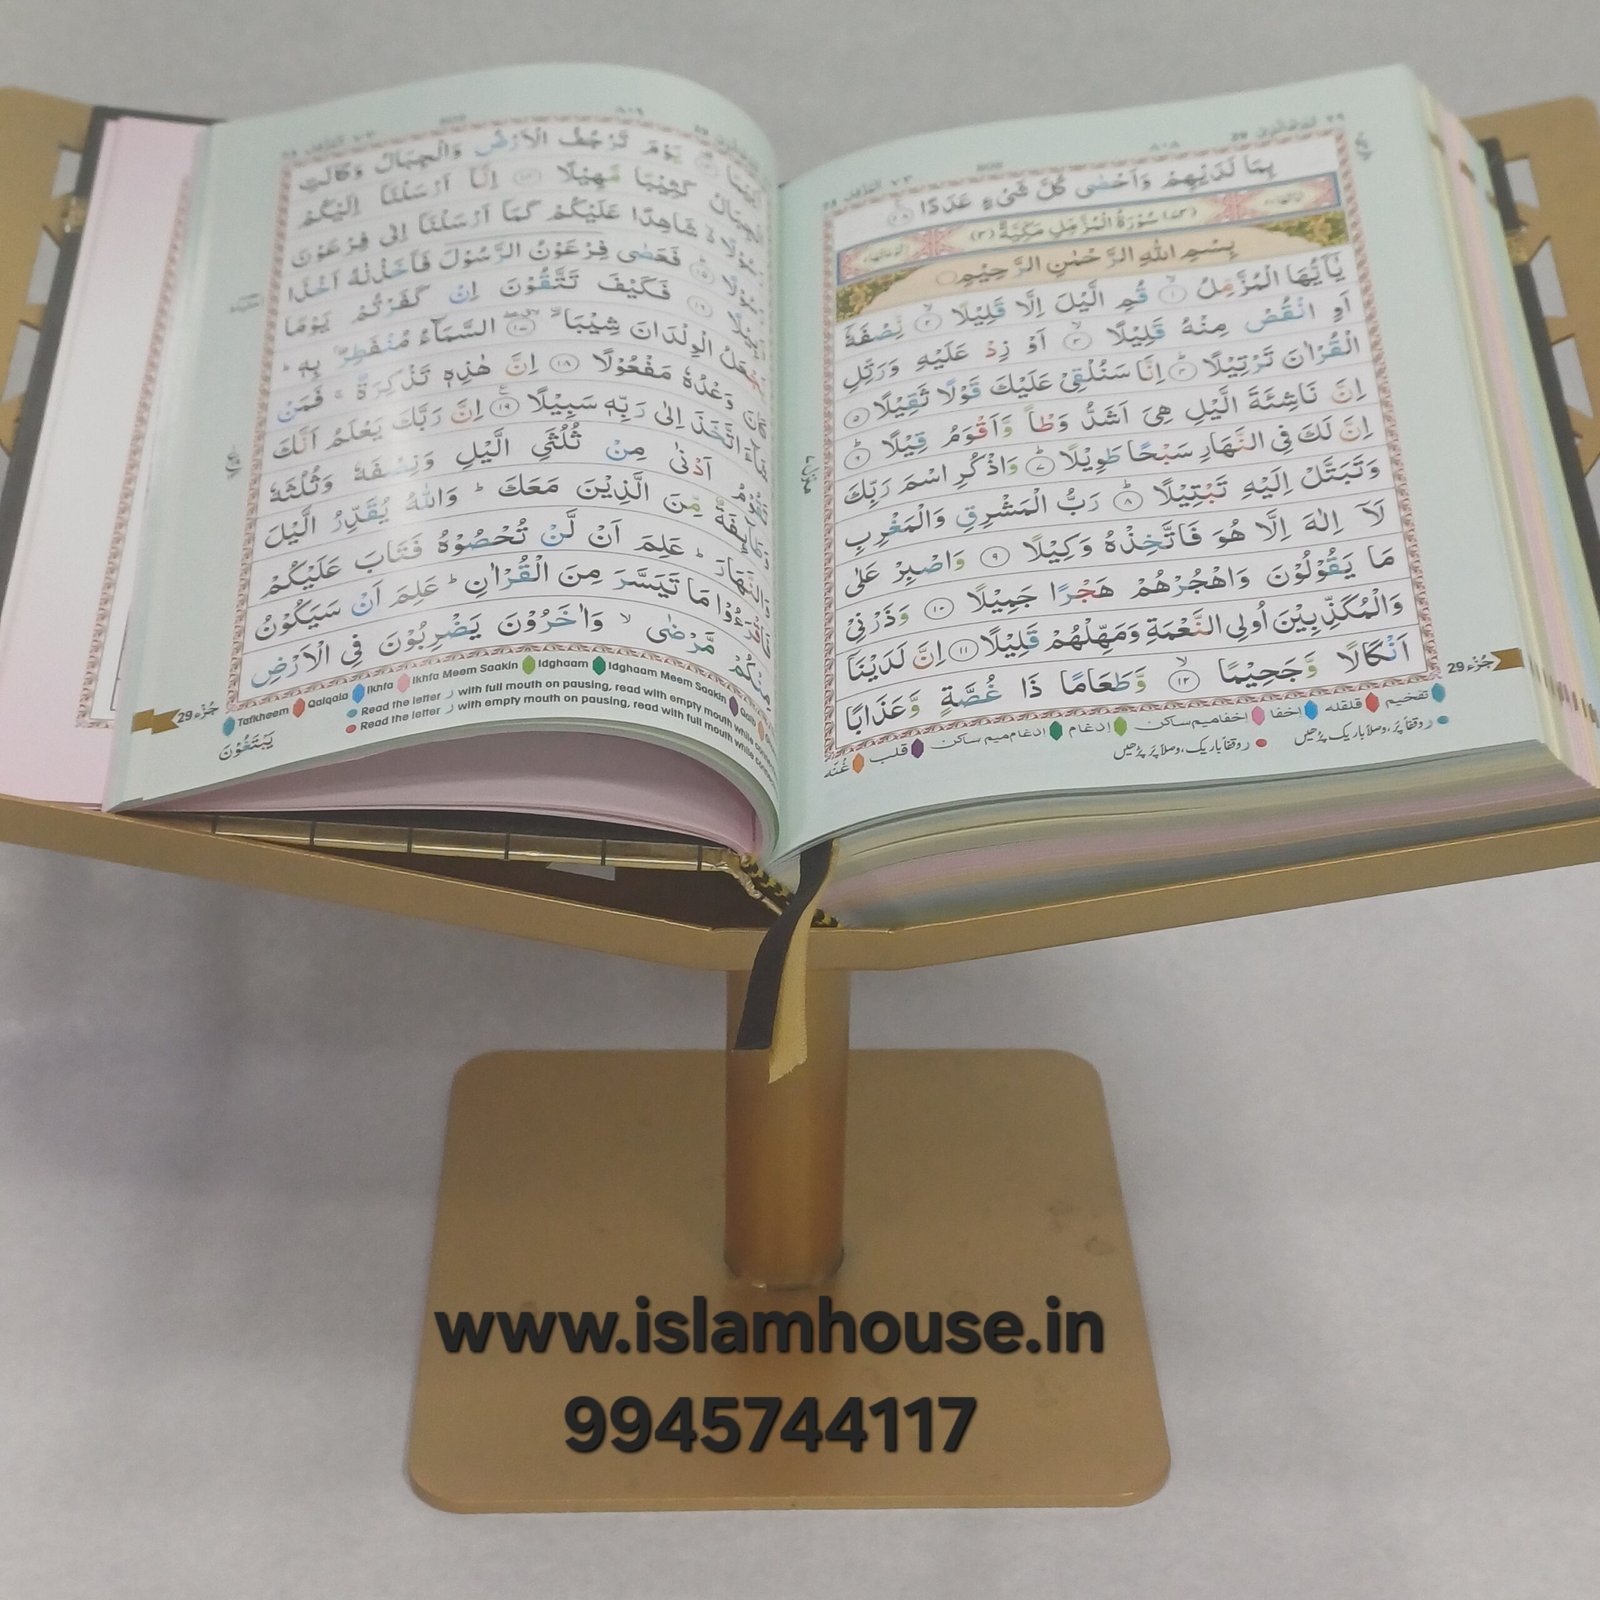 بِمَا لَدَيْهِمْ وَاَحْصٰى كُلَّ شَىْءٍ عَدَدًا ﴿٢٨﴾
سُوْرَةُ الْمُزَّمِّلِ مَكِّيَّةٌ (٣)
بِسْمِ اللّٰهِ الرَّحْمٰنِ الرَّحِيْمِ
يٰٓاَيُّهَا الْمُزَّمِّلُ ۙ﴿١﴾ قُمِ الَّيْلَ اِلَّا قَلِيْلًا ۙ﴿٢﴾ نِّصْفَهٗٓ
اَوِ انْقُصْ مِنْهُ قَلِيْلًا ۙ﴿٣﴾ اَوْ زِدْ عَلَيْهِ وَرَتِّلِ
الْقُرْاٰنَ تَرْتِيْلًا ؕ﴿٤﴾ اِنَّا سَنُلْقِىْ عَلَيْكَ قَوْلًا ثَقِيْلًا ﴿٥﴾
اِنَّ نَاشِئَةَ الَّيْلِ هِىَ اَشَدُّ وَطْاً وَّاَقْوَمُ قِيْلًا ؕ﴿٦﴾
اِنَّ لَكَ فِى النَّهَارِ سَبْحًا طَوِيْلًا ؕ﴿٧﴾ وَاذْكُرِ اسْمَ رَبِّكَ
وَتَبَتَّلْ اِلَيْهِ تَبْتِيْلًا ؕ﴿٨﴾ رَبُّ الْمَشْرِقِ وَالْمَغْرِبِ
لَاۤ اِلٰهَ اِلَّا هُوَ فَاتَّخِذْهُ وَكِيْلًا ﴿٩﴾ وَاصْبِرْ عَلٰى
مَا يَقُوْلُوْنَ وَاهْجُرْهُمْ هَجْرًا جَمِيْلًا ﴿١٠﴾ وَذَرْنِىْ
وَالْمُكَذِّبِيْنَ اُولِى النَّعْمَةِ وَمَهِّلْهُمْ قَلِيْلًا ﴿١١﴾ اِنَّ لَدَيْنَاۤ
اَنْكَالًا وَّجَحِيْمًا ۙ﴿١٢﴾ وَّطَعَامًا ذَا غُصَّةٍ وَّعَذَابًا
جُزْء 29
تفخیم قلقلہ اخفا اخفامیم ساکن ادغام ادغام میم ساکن قلب غُنّہ
ر وقفاً پُر، وصلاً باریک پڑھیں
ر وقفاً باریک، وصلاً پُر پڑھیں
يَوْمَ تَرْجُفُ الْاَرْضُ وَالْجِبَالُ وَكَانَتِ
الْجِبَالُ كَثِيْبًا مَّهِيْلًا ﴿١٤﴾ اِنَّاۤ اَرْسَلْنَاۤ اِلَيْكُمْ
رَسُوْلًا ۙ شَاهِدًا عَلَيْكُمْ كَمَاۤ اَرْسَلْنَاۤ اِلٰى فِرْعَوْنَ
رَسُوْلًا ؕ﴿١٥﴾ فَعَصٰى فِرْعَوْنُ الرَّسُوْلَ فَاَخَذْنٰهُ اَخْذًا
وَّبِيْلًا ﴿١٦﴾ فَكَيْفَ تَتَّقُوْنَ اِنْ كَفَرْتُمْ يَوْمًا
يَّجْعَلُ الْوِلْدَانَ شِيْبَا ۨ ﴿١٧﴾ السَّمَآءُ مُنْفَطِرٌۢ بِهٖ ؕ
كَانَ وَعْدُهٗ مَفْعُوْلًا ﴿١٨﴾ اِنَّ هٰذِهٖ تَذْكِرَةٌ ۚ فَمَنْ
شَآءَ اتَّخَذَ اِلٰى رَبِّهٖ سَبِيْلًا ﴿١٩﴾ اِنَّ رَبَّكَ يَعْلَمُ اَنَّكَ
تَقُوْمُ اَدْنٰى مِنْ ثُلُثَىِ الَّيْلِ وَنِصْفَهٗ وَثُلُثَهٗ
وَطَآئِفَةٌ مِّنَ الَّذِيْنَ مَعَكَ ؕ وَاللّٰهُ يُقَدِّرُ الَّيْلَ
وَالنَّهَارَ ؕ عَلِمَ اَنْ لَّنْ تُحْصُوْهُ فَتَابَ عَلَيْكُمْ
فَاقْرَءُوْا مَا تَيَسَّرَ مِنَ الْقُرْاٰنِ ؕ عَلِمَ اَنْ سَيَكُوْنُ
مِنْكُمْ مَّرْضٰى ۙ وَاٰخَرُوْنَ يَضْرِبُوْنَ فِى الْاَرْضِ
جُزْء 29
Tafkheem Qalqala Ikhfa Ikhfa Meem Saakin Idghaam Idghaam Meem Saakin Qalb
Read the letter ر with full mouth on pausing, read with empty mouth while
Read the letter ر with empty mouth on pausing, read with full mouth while
يَبْتَغُوْنَ
www.islamhouse.in
9945744117